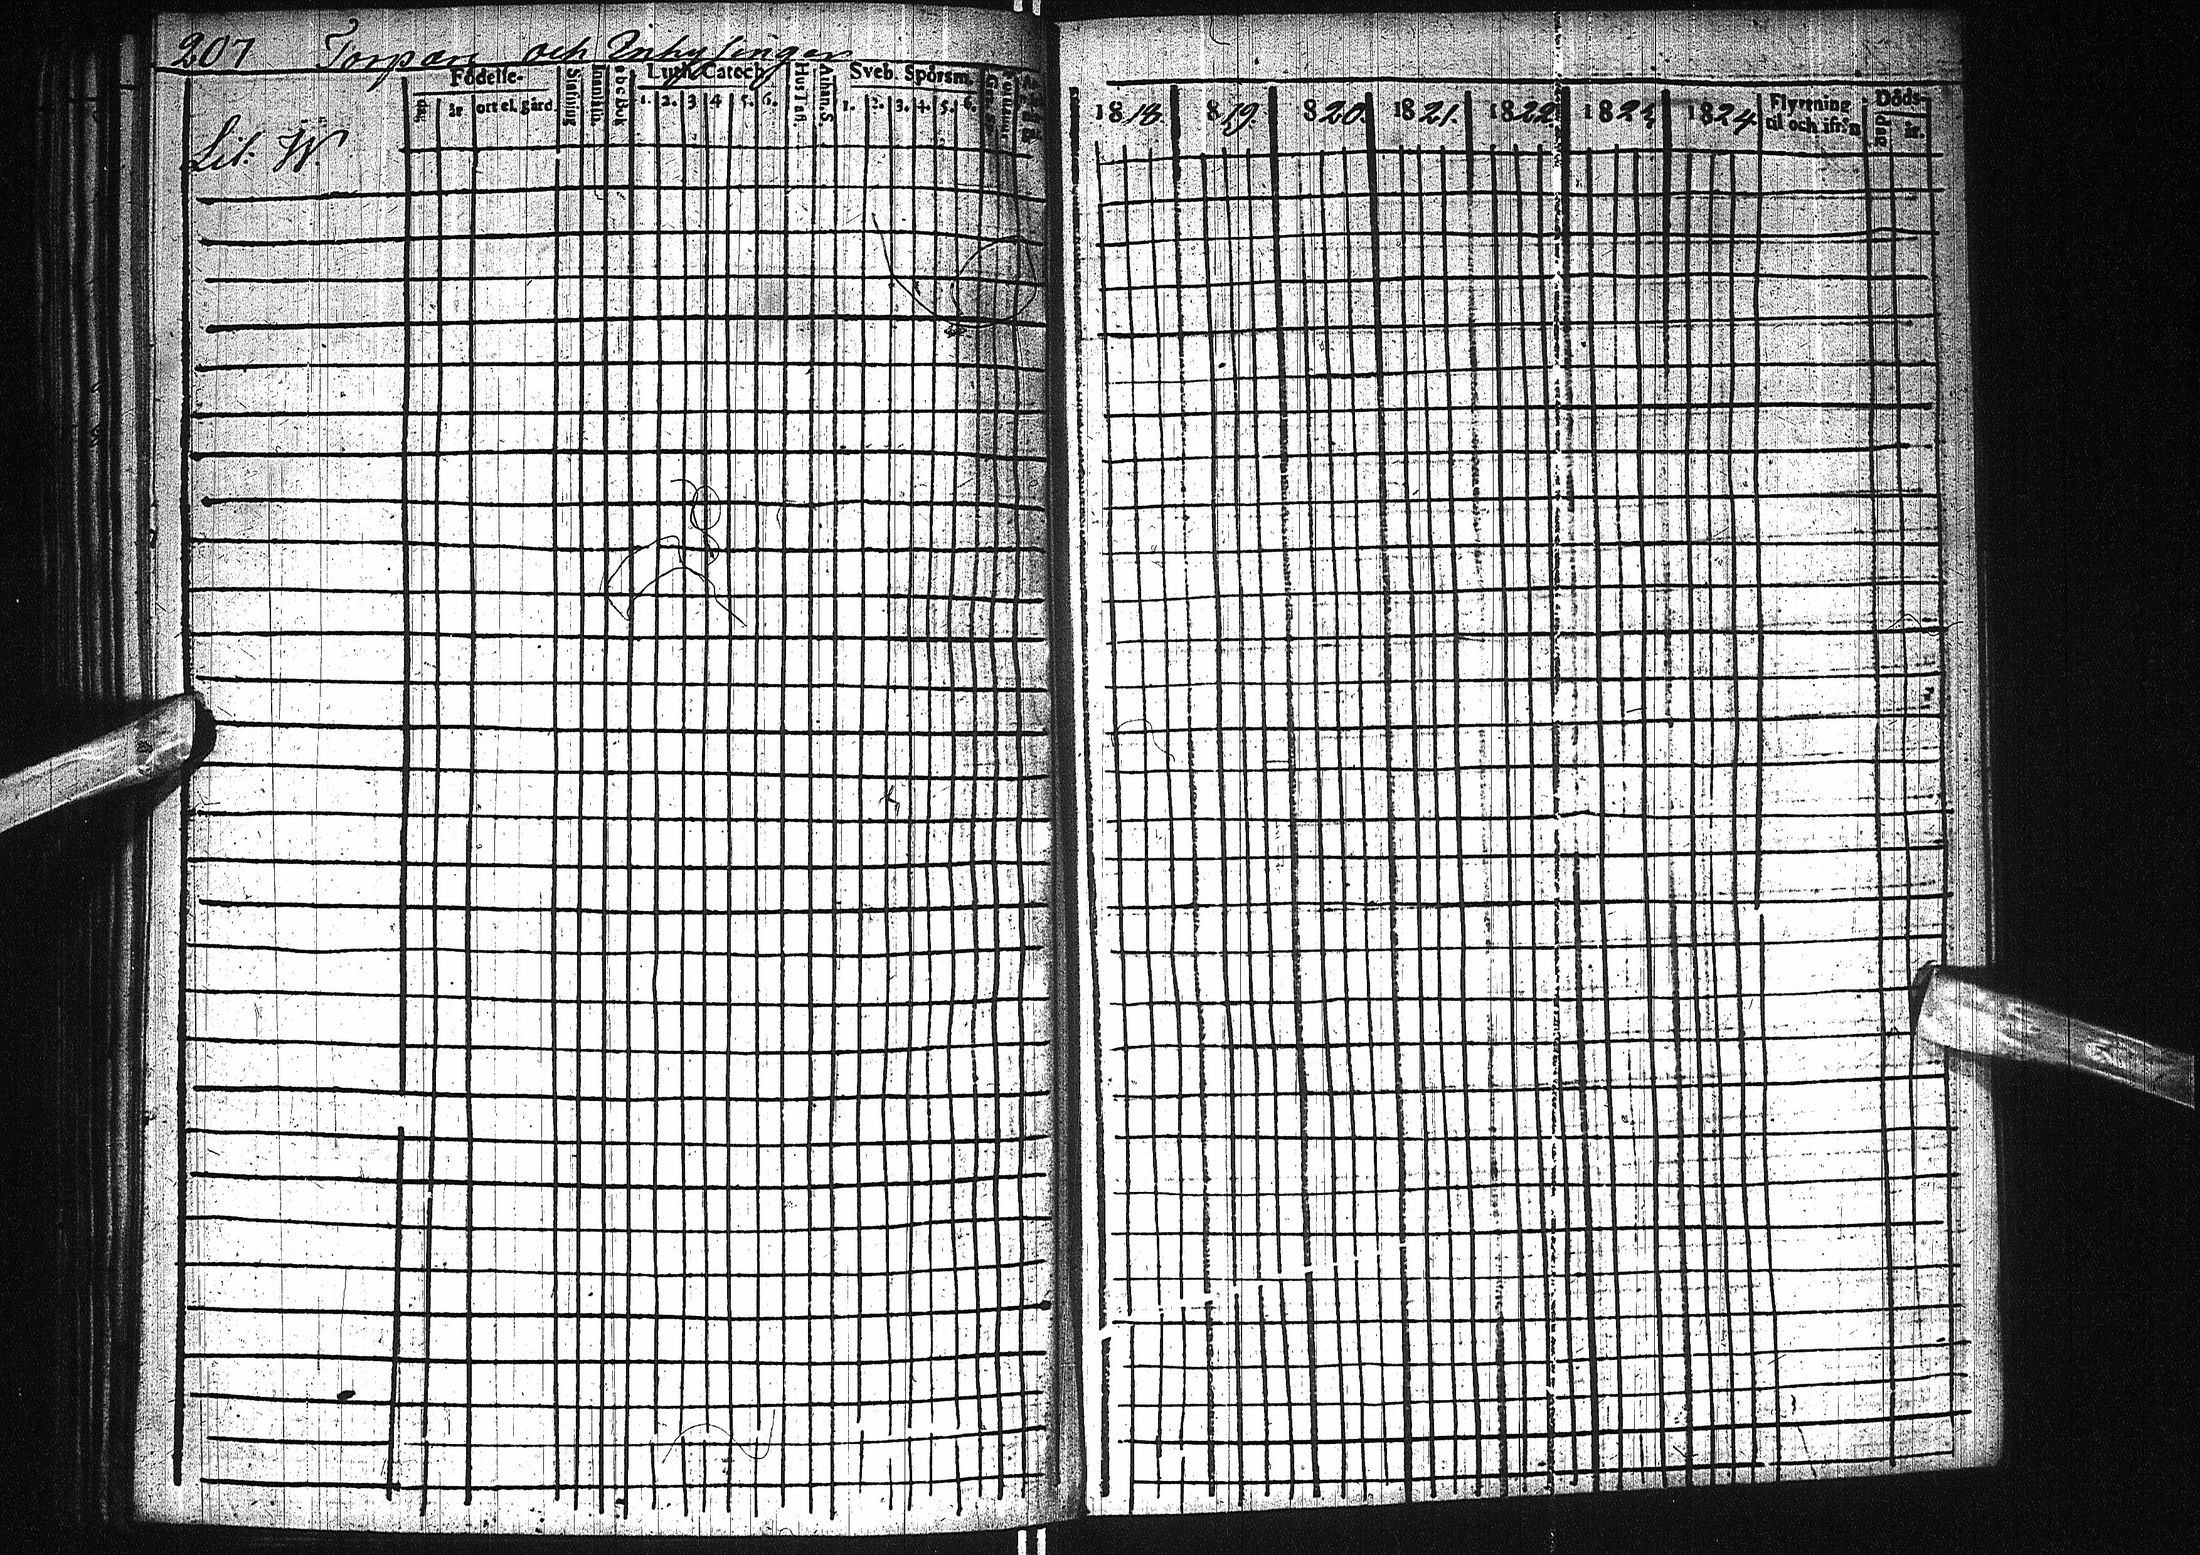 207 Torpare och Inhysingar
Födelse- Luth. Catech. Sveb. Spörsm.
dag år ort el. gård. Stafning Innanläs. a b c Bok 1. 2. 3 4 5. 6. Hustafl. Athan. S. 1. 2. 3. 4. 5. 6.
Lit: W.
1818 1819. 1820. 1821. 1822. 1823 1824 Flyttning til och ifrån Döds- dag år.